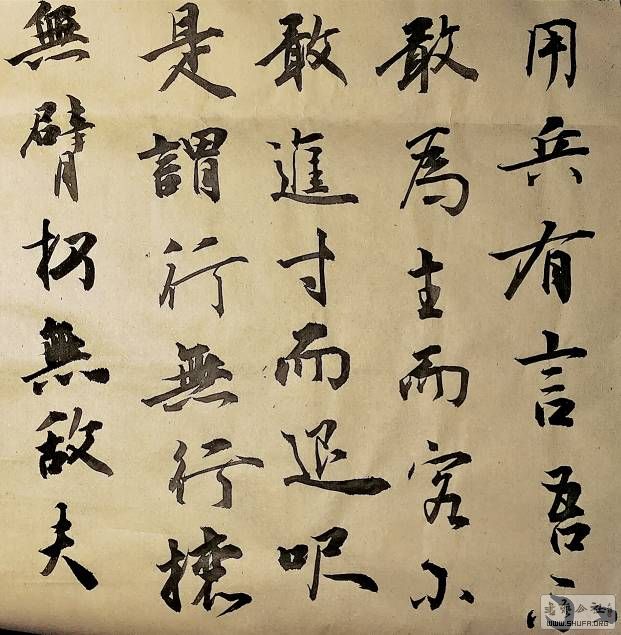 用兵有言吾不
敢為主而客不
敢進寸而退呎
是謂行無行攘
無臂扔無敌夫
WWW.SHUFA.ORG